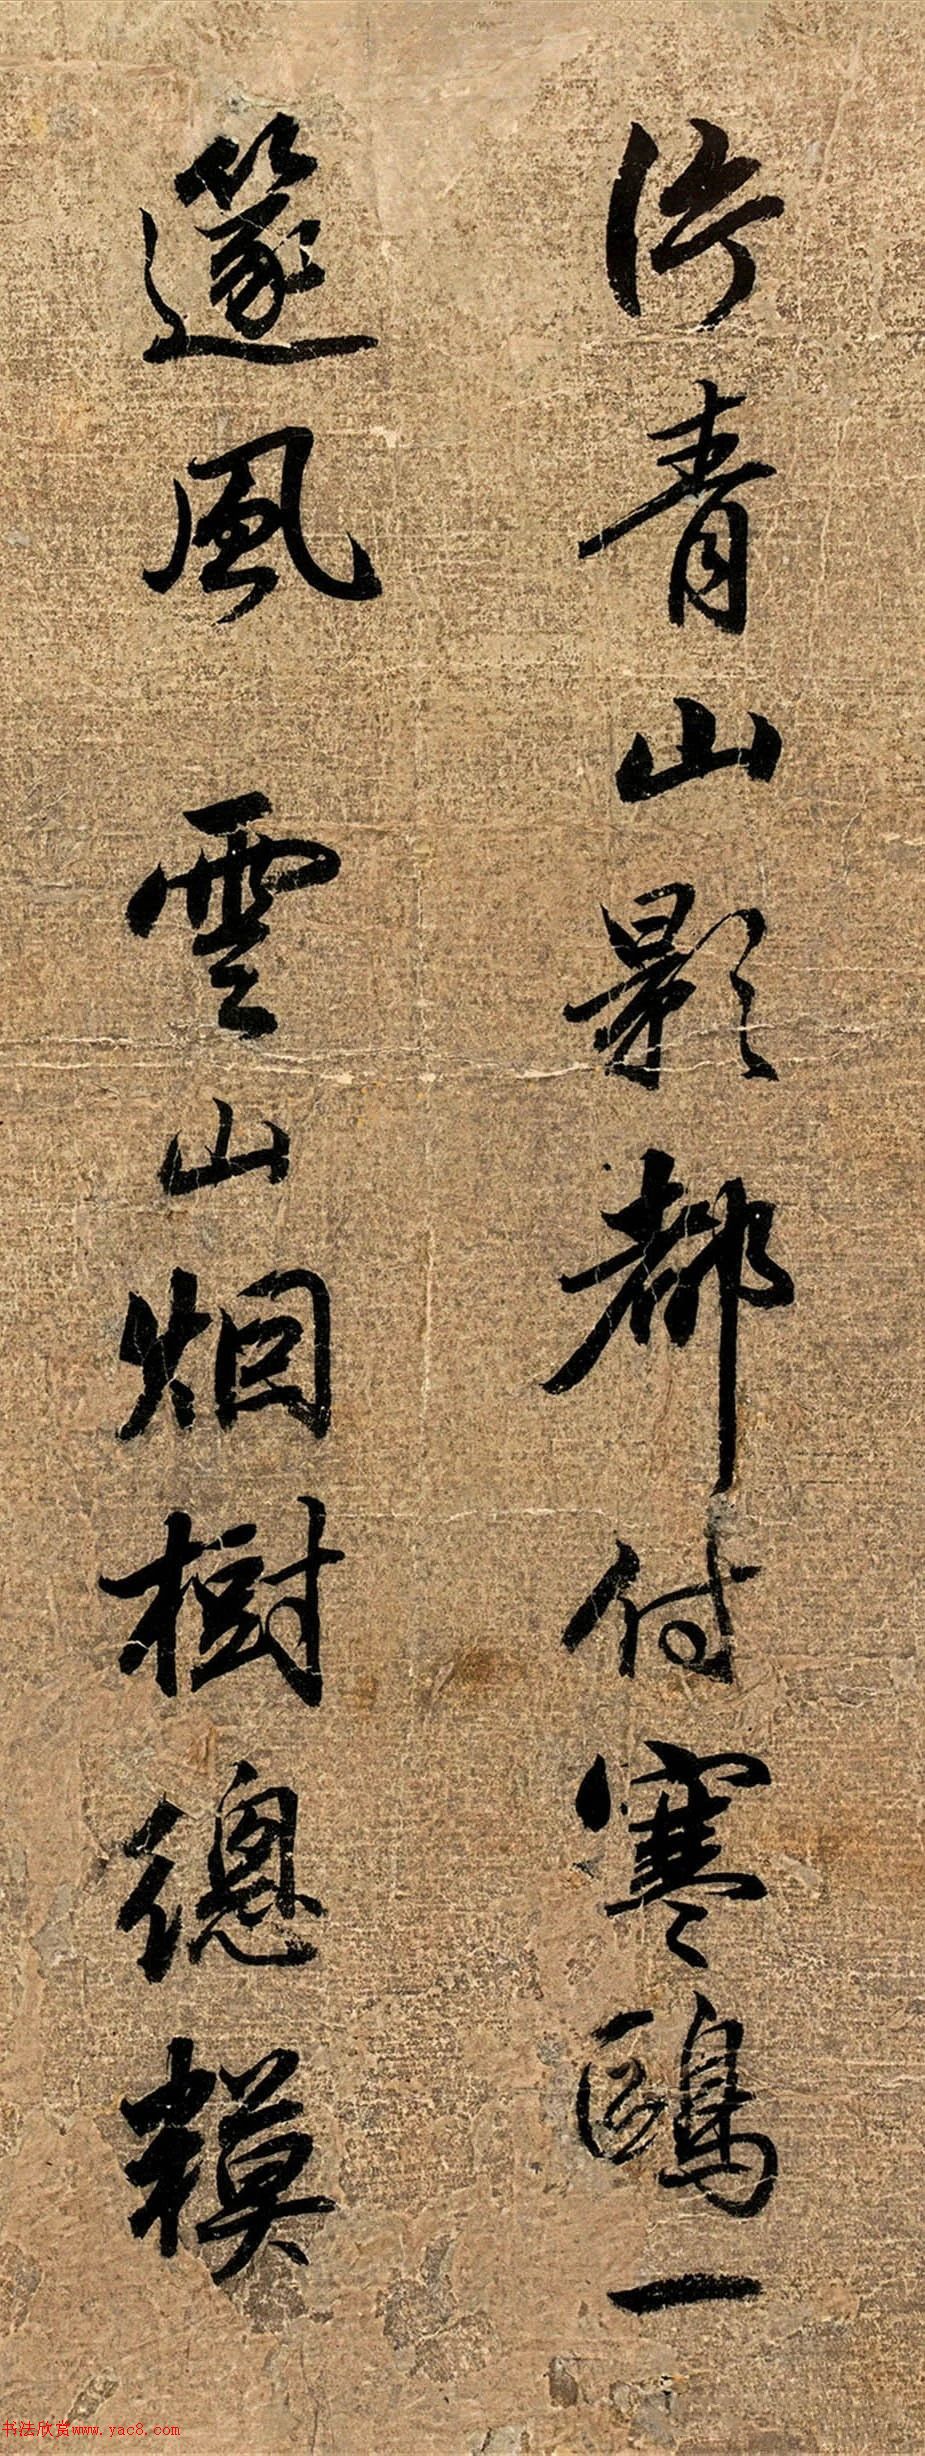 許青山影都付寒鷗一
篴風雲山烟樹總糢
书法欣赏www.yac8.com